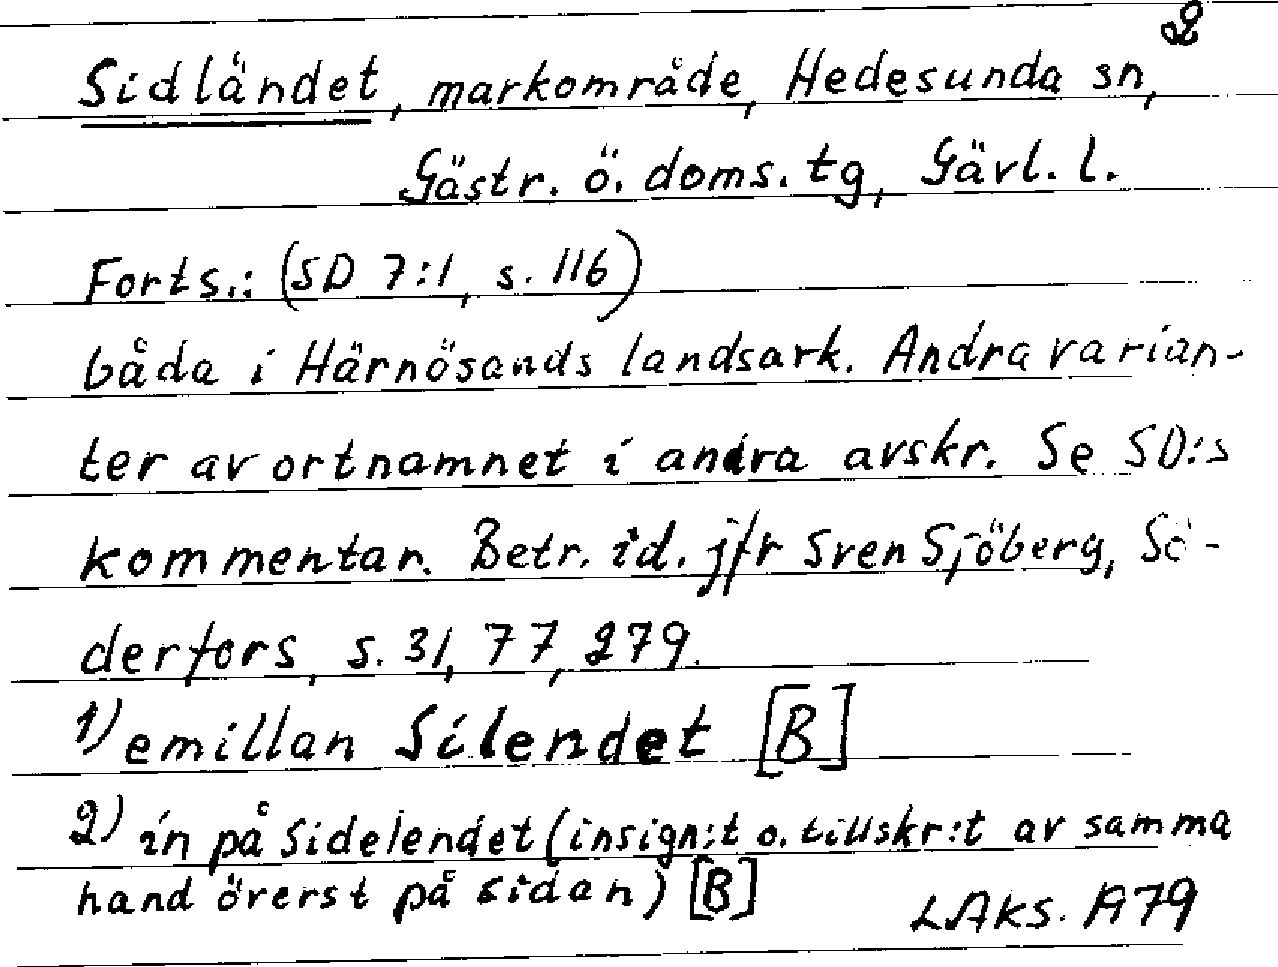 2
Sidländet, markområde, Hedesunda sn,
Gästr. ö. doms. tg, Gävl. l.
Forts.: (SD 7:1, s. 116)
båda i Härnösands landsark. Andra varian-
ter av ortnamnet i andra avskr. Se SD:s
kommentar. Betr. id. jfr Sven Sjöberg, Sö-
derfors, s. 31, 77, 279.
1) emillan Silendet [B]
2) in på Sidelendet (insign:t o. tillskr:t av samma
hand överst på sidan) [B]
LAKS. A79